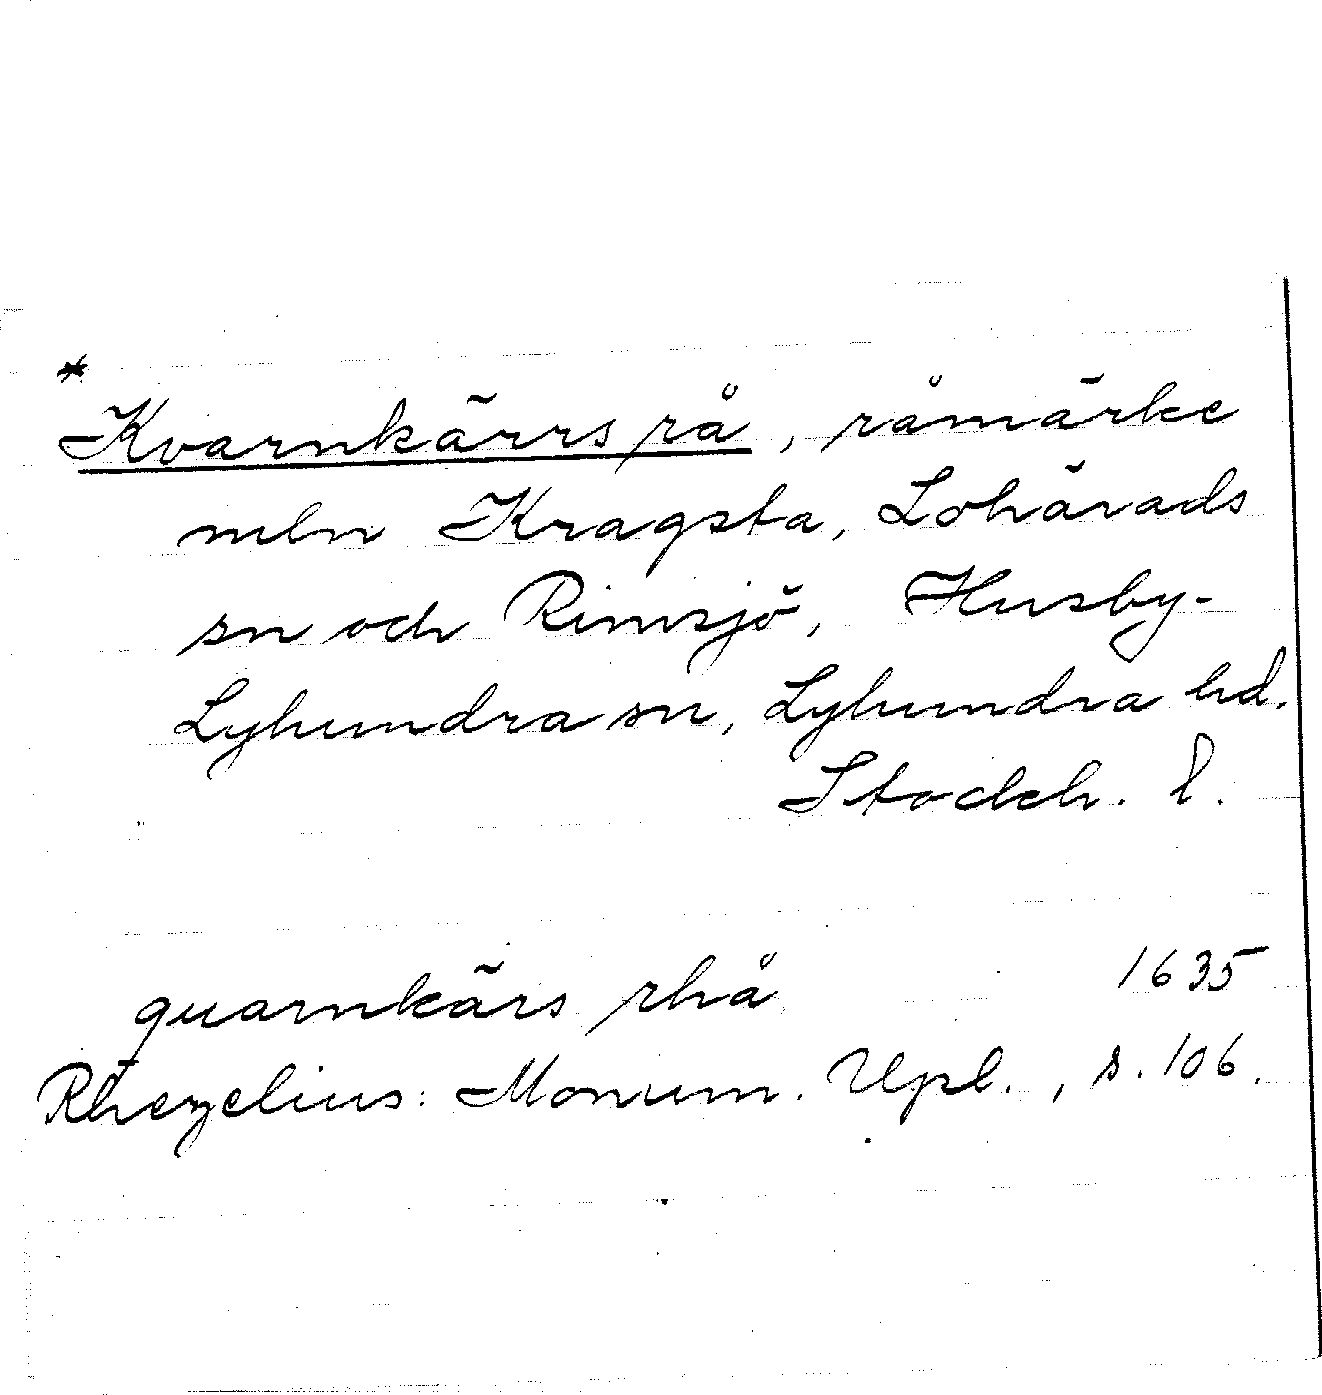 *
Kvarnkärrs rå, råmärke
mln Kragsta, Lohärads
sn och Rimsjö, Husby-
Lyhundra sn, Lyhundra hd.
Stockh. l.
quarnkärs rhå 1635
Rhezelius: Monum. Upl., s. 106.